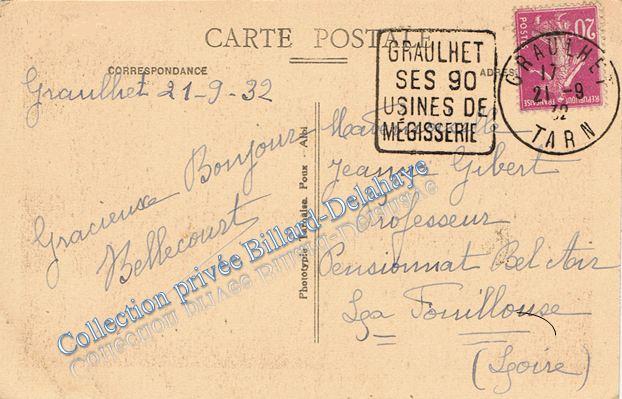 CARTE POSTALE
CORRESPONDANCE
Graulhet 21-9-32
Gracieux Bonjour
Bellecourt
Phototypie Tarnaise Poux - Albi
GRAULHET
SES 90
USINES DE
MÉGISSERIE
GRAULHET
17
21 -9
32
TARN
20
POSTES
REPUBLIQUE FRANÇAISE
Mademoiselle
Jeanne Gibert
Professeur
Pensionnat Bel Air
La Fouillouse
(Loire)
Collection privée Billard-Delahaye